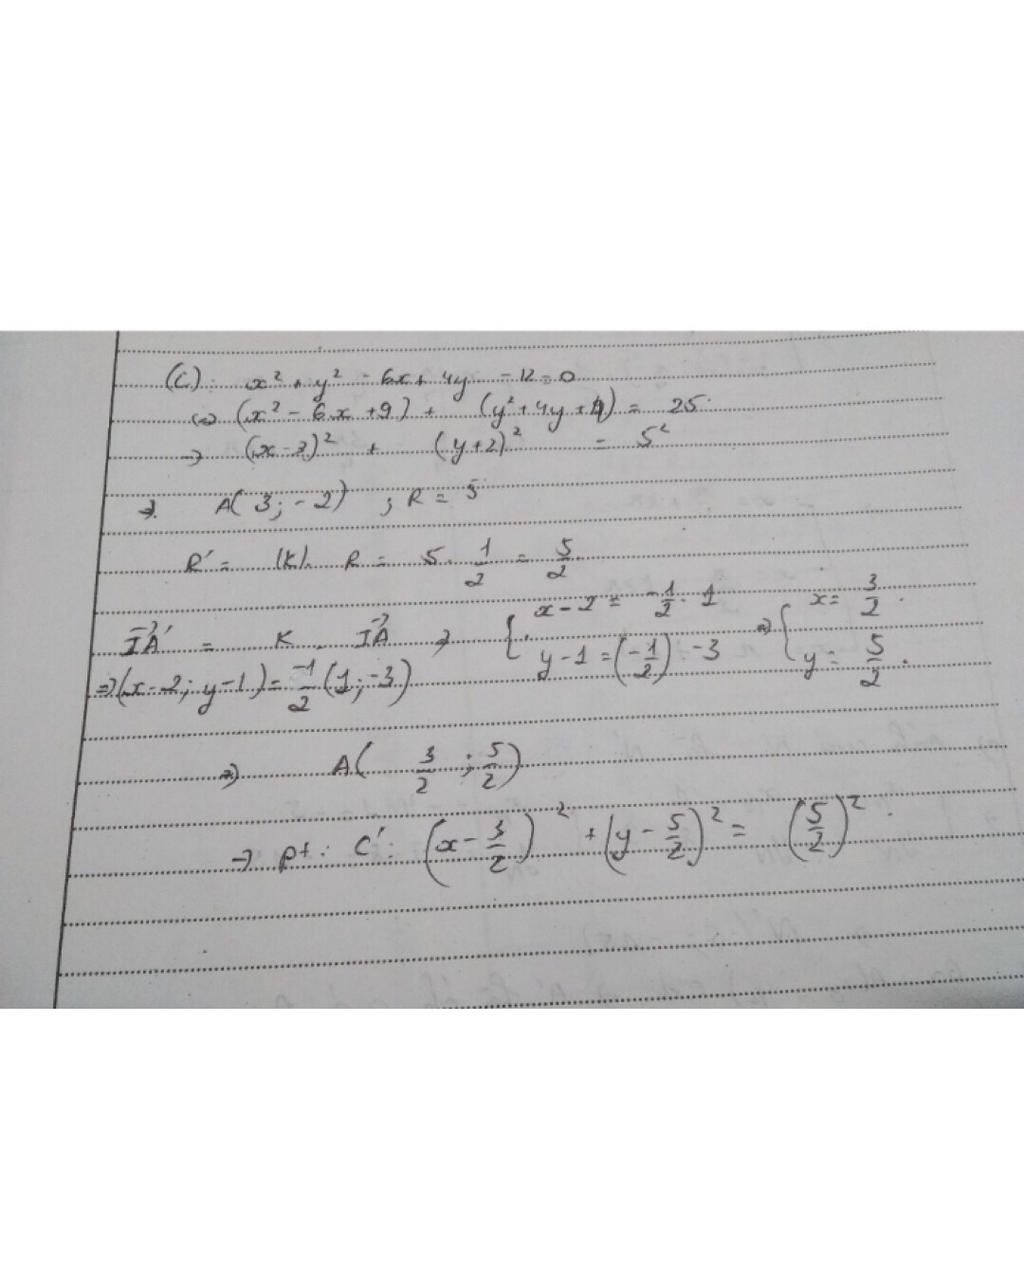 (C): x² + y² - 6x + 4y - 12 = 0
<=> (x² - 6x + 9) + (y² + 4y + 4) = 25
→ (x - 3)² + (y + 2)² = 5²
=> A(3; -2) ; R = 5
R' = |K|. R = 5. 1/2 = 5/2
IA' = K . IA => { x - 2 = -1/2 . 1 => { x = 3/2 .
y - 1 = (-1/2) . -3 y = 5/2 .
=> (x - 2; y - 1) = -1/2 (1; -3)
=> A( 3/2 ; 5/2 )
→ pt : C' : (x - 3/2)² + (y - 5/2)² = (5/2)² .